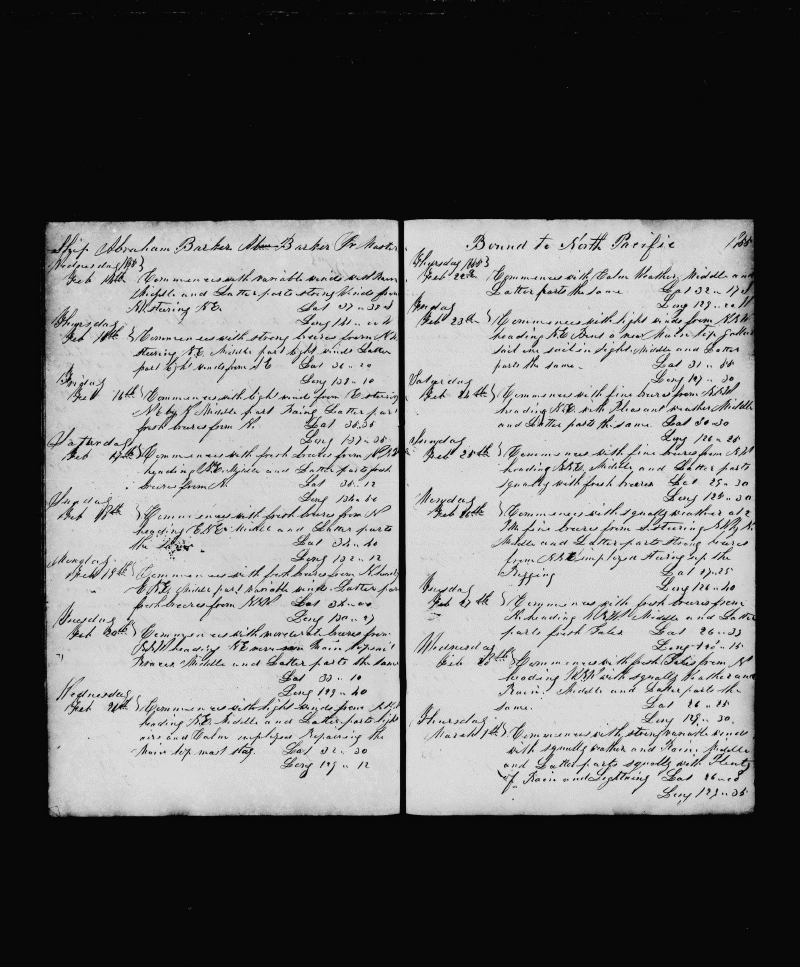 Ship Abraham Barker Barker Jr Master
Wednesday 1855
Feb 14th Commences with variable winds and Rain
Middle and Latter parts strong Winds from
N Steering N.E. Lat 37 " 32 S
Long 141 " 00 W
Thursday
Feb 15th Commences with strong breezes from N
steering N.E. Middle part light winds Latter
part light winds from S.E Lat 36 " 20
Long 138 " 10
Friday
Feb 16th Commences with light winds from E steering
N.E. by N Middle part Rain Latter part
fresh breezes from N. Lat 35 " 35
Long 137 " 35
Saturday
Feb 17th Commences with fresh breezes from
heading Middle and Latter parts fresh
breezes from N. Lat 35 " 12
Long 134 " 50
Sunday
Feb 18th Commences with fresh breezes from N
heading E.N.E Middle and Latter parts
the same Lat 34 " 40
Long 132 " 12
Monday
Feb 19th Commences with fresh breezes from N heading
E.N.E. Middle part variable winds. Latter part
fresh breezes from Lat 34 " 00
Long 130 "
Tuesday
Feb 20th Commences with moderate breezes from
heading N.E. Rain
Middle and Latter parts the same
Lat 33 " 10
Long 129 " 40
Wednesday
Feb 21st Commences with light winds from
heading N.E. Middle and Latter parts light
airs and Calm employed Repairing the
Main top mast stay. Lat 32 " 30
Long 129 " 12
Bound to North Pacific 1855
Thursday 1855
Feb 22nd Commences with Calm Weather, Middle and
Latter parts the same Lat 32 " 17 S
Long 129 " 00 W
Friday
Feb 23d Commences with light winds from
heading N.E Bent a new Main top gallant
sail one sail in sight. Middle and Latter
parts the same. Lat 31 " 55
Long 127 " 30
Saturday
Feb 24th Commences with fine breezes from
heading with Pleasant weather Middle
and Latter parts the same Lat 30 " 30
Long 126 " 25
Sunday
Feb 25th Commences with fine breezes from
heading Middle and Latter parts
squally with fresh breezes Lat 29 " 30
Long 124 " 30
Monday
Feb 26th Commences with squally weather at 2
P.M fine breezes from S steering
Middle and Latter parts strong breezes
from employed Staring up the
Rigging Lat 27 " 25
Long 126 " 40
Tuesday
Feb 27th Commences with fresh breezes from
N. heading Middle and Latter
parts fresh Gales Lat 26 " 33
Long
Wednesday
Feb 28th Commences with fresh Gales from N
heading with squally Weather and
Rain. Middle and Latter parts the
same. Lat 26 " 25
Long 129 " 30
Thursday
March 1st Commences with strong variable winds
with squally weather and Rain. Middle
and Latter parts squally with Plenty
of Rain and Lightning Lat 26 " 08
Long 129 " 35